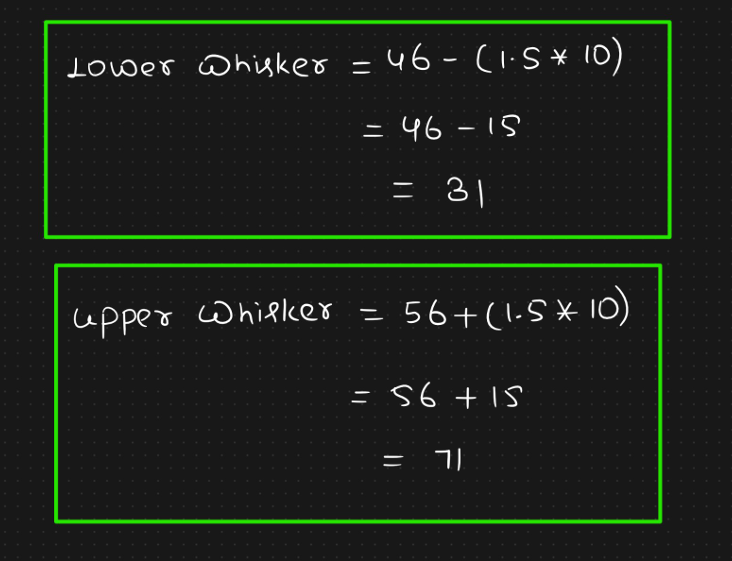 Lower Whisker = 46 - (1.5 * 10)
= 46 - 15
= 31
upper Whisker = 56 + (1.5 * 10)
= 56 + 15
= 71